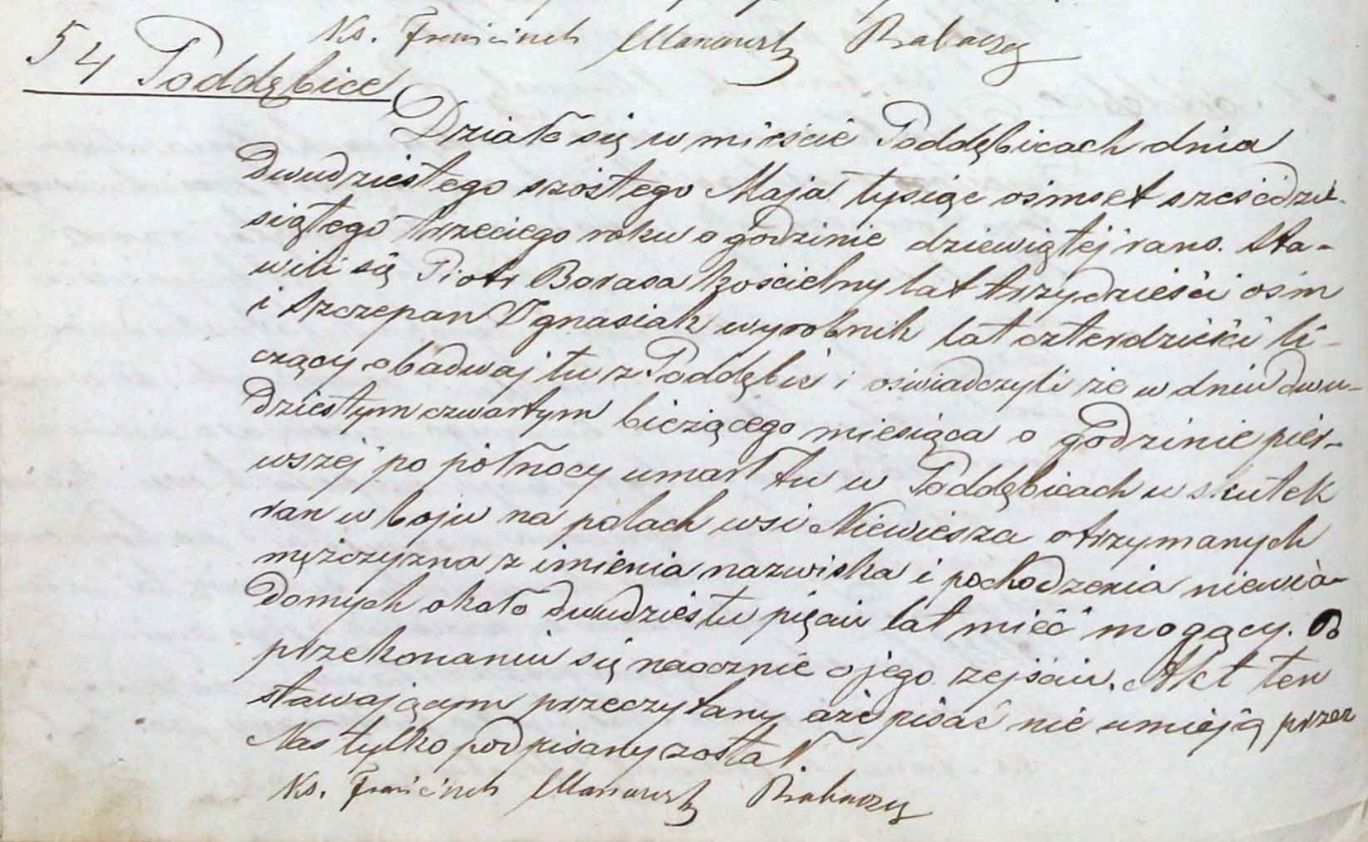 Ks. Franciszek
54 Poddębice
Działo się w mieście Poddębicach dnia
Dwudziestego szóstego Maja tysiąc ośmset sześćdzie-
siątego trzeciego roku o godzinie dziewiątej rano. Sta-
wili się Piotr Barasa kościelny lat trzydzieści ośm
i Szczepan Ignasiak wyrobnik lat czterdzieści li-
czący obadwaj tu z Poddębic i oświadczyli że w dniu dwu-
dziestym czwartym bieżącego miesiąca o godzinie pier-
wszej po północy umarł tu w Poddębicach w skutek
ran w boju na polach wsi Niewiesza otrzymanych
mężczyzna z imienia nazwiska i pochodzenia niewia-
domych około dwudziestu pięciu lat mieć mogący. Po
przekonaniu się naocznie o jego zejściu. Akt ten
stawającym przeczytany aże pisać nie umieją przez
Nas tylko podpisany został
Ks. Franciszek